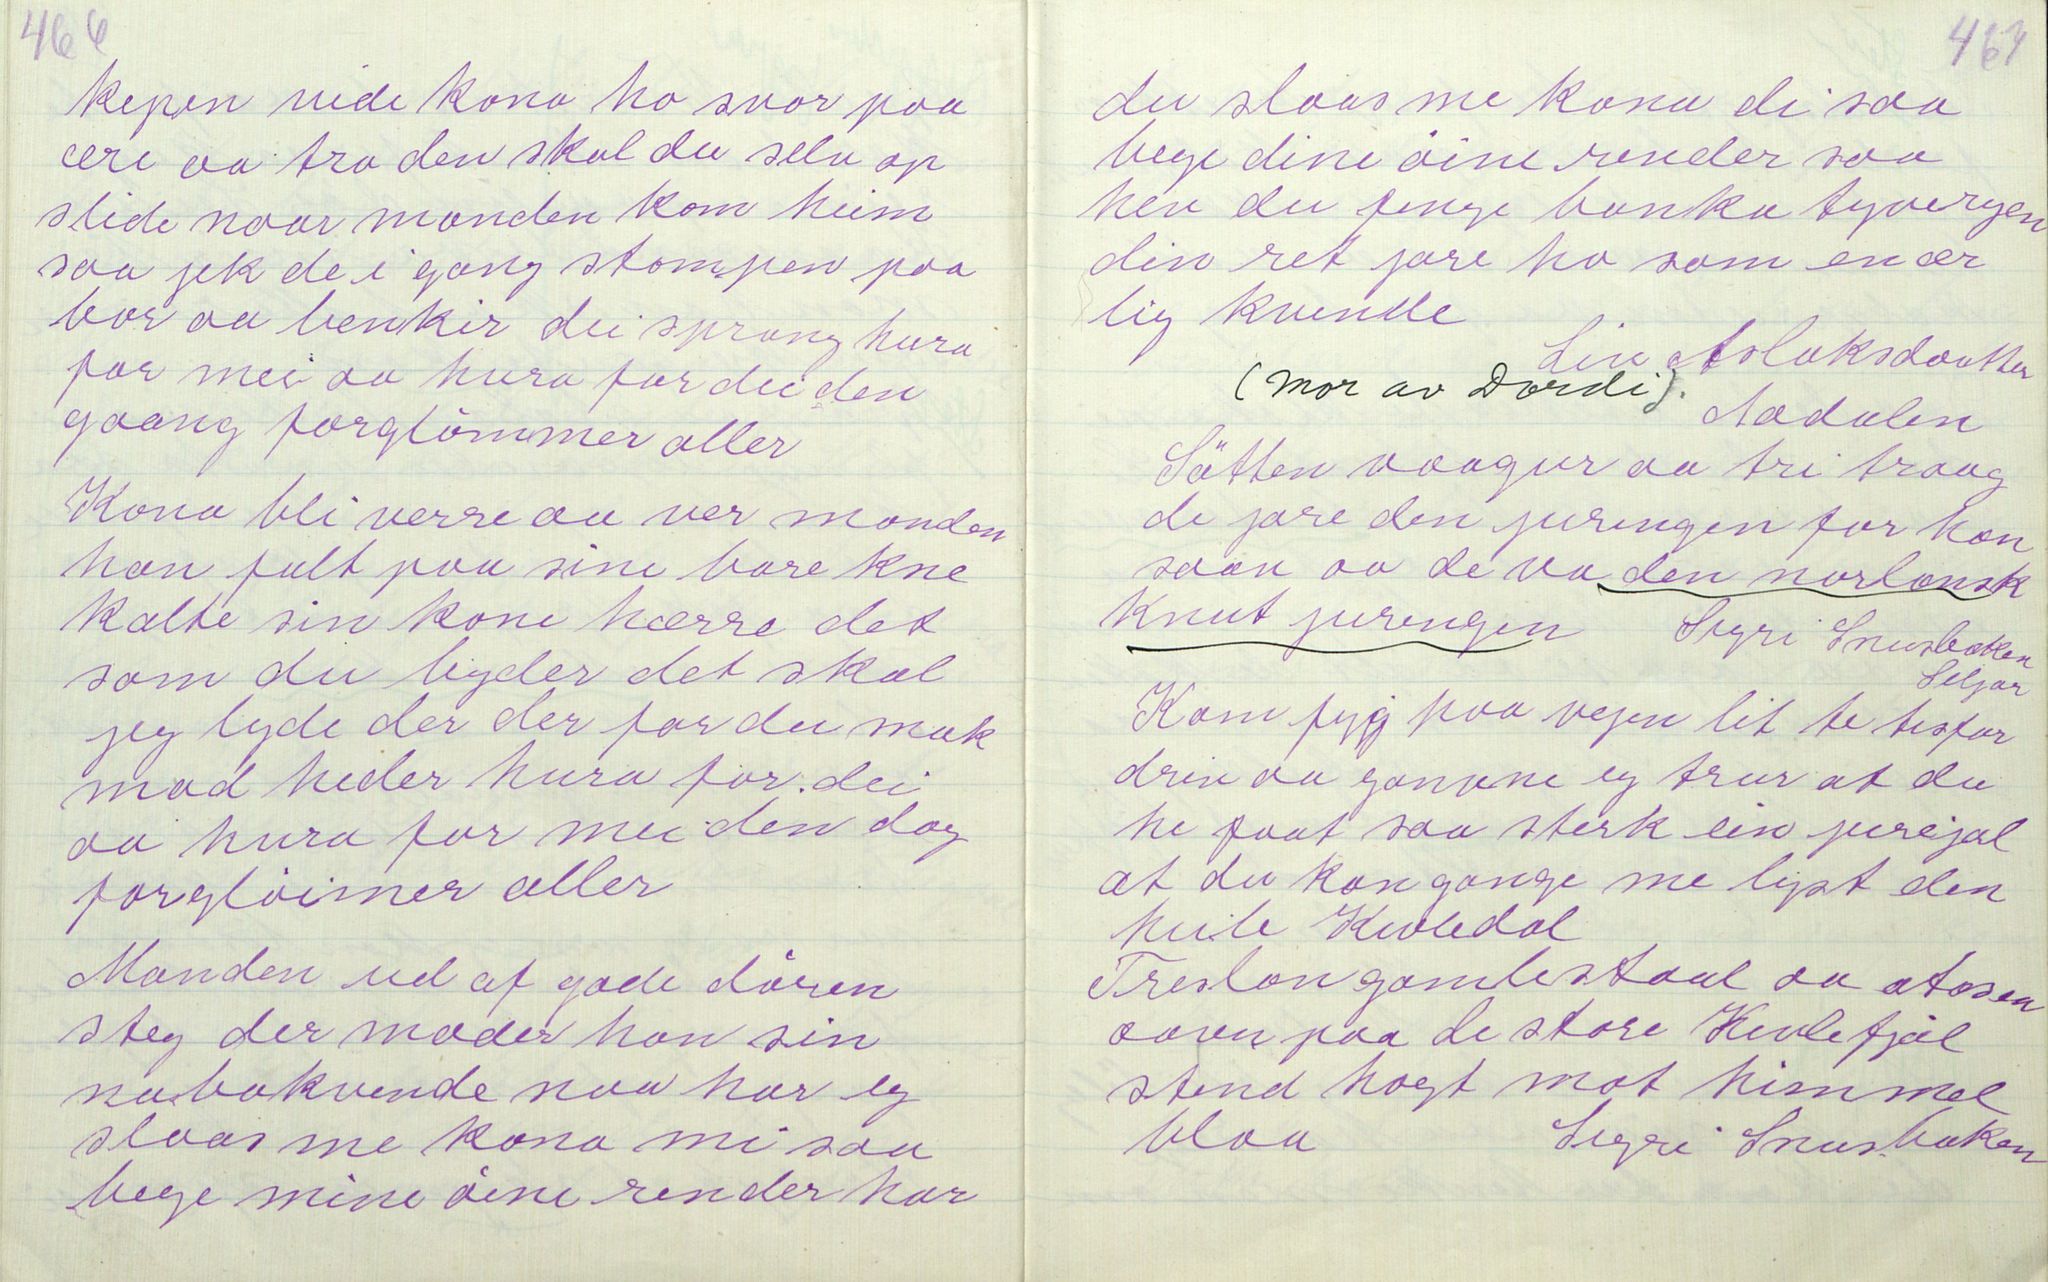 466
kepen vide kona ho svor paa
ære aa tro den skal du selv op
slide naar manden kom heim
saa jek de i gang stompen paa
bor aa benkir dei sprang hura
for mei aa hura for dei den
gaang forglömmer aller
Kona bli verre aa ver manden
han falt paa sine bare kne
kalte sin kone hærre det
som du byder det skal
jeg lyde der der for du mak
mod heder hura for dei
aa hura for mei den dag
forglöimer aller
Manden ud af gade dören
steg der møder han sin
nabokvende naa har eg
slaas me kona mi saa
bege mine öine render har
467
du slaas me kona di saa
bege dine öine render saa
hev du fenge banka tyvergen
din ret jore ho som en ær
lig kvende
Liv Aslaksdaatter
(mor av Dordi).
Aadalen
Sötten vaagur aa tri traag
de jore den juringen for han
saaa aa de va den norlansk
Knut juringen
Sigri Snusbaken
Seljor
Kom fygj paa vejen lit te tisfor
driv aa ganvne eg trur at du
he faat saa sterk ein jureijæl
at du kan gange me lyst den
heile Kivledal
Treslongamlestaul aa atosen
aavn paa de store Kivlefjæl
stend hogt mot himmel
blaa
Sigri Snusbaken